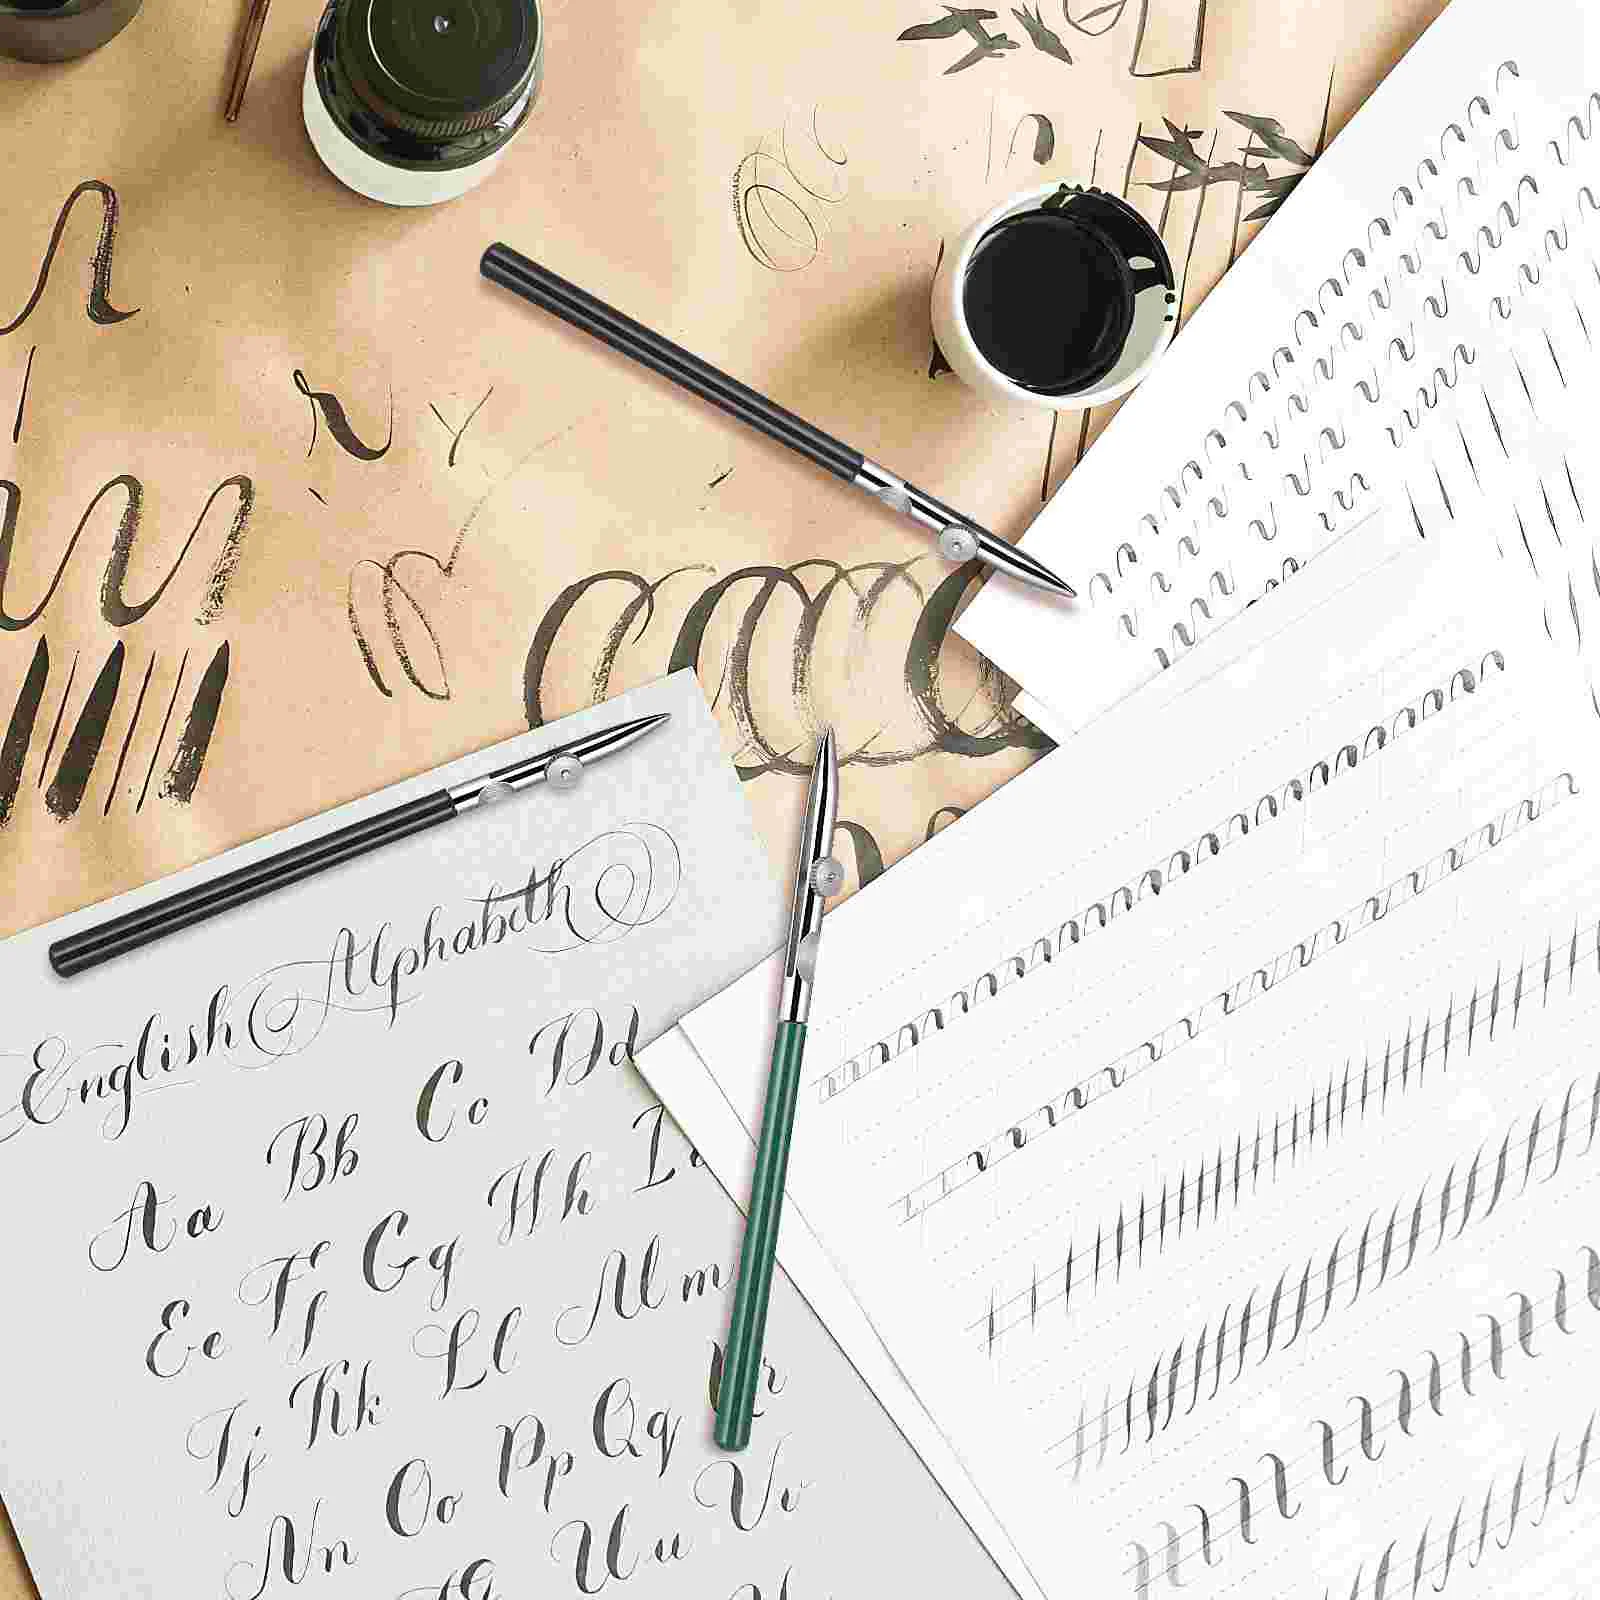 r Y
English Alphabeth
Aa Bb Cc Dd
Ee Ff Gg Hh I
Jj Kk Ll Mm
Nn Oo Pp Qq r
Uu Vv